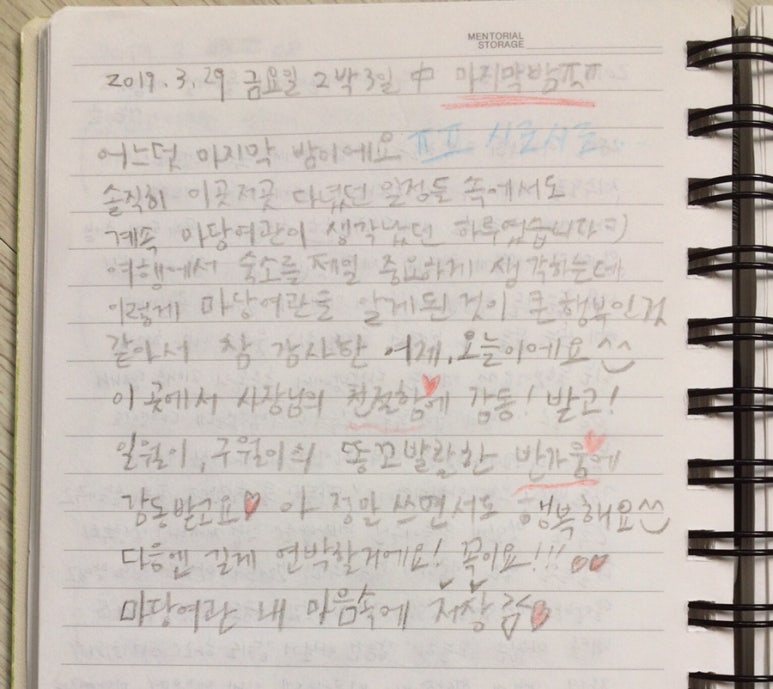 MENTORIAL
STORAGE
2019.3.29 금요일 2박3일 中 마지막밤ㅠㅠ
어느덧 마지막 밤이에요 ㅠㅠ
솔직히 이곳저곳 다녔던 일정들 속에서도
계속 마당여관이 생각났던 하루였습니다=)
여행에서 숙소를 제일 중요하게 생각하는데
이렇게 마당여관을 알게된 것이 큰 행부인것
같아서 참 감사한 어제, 오늘이에요^^
이 곳에서 사장님의 친절함♥에 감동! 받고!
일월이, 구월이의 똥꼬발랄한 반가움♥에
감동받고요♥ 아 정말 쓰면서도 행복해요^^
다음엔 길게 연박할거에요! 꼭이요!!!♥♥
마당여관 내 마음속에 저장 쿵♥